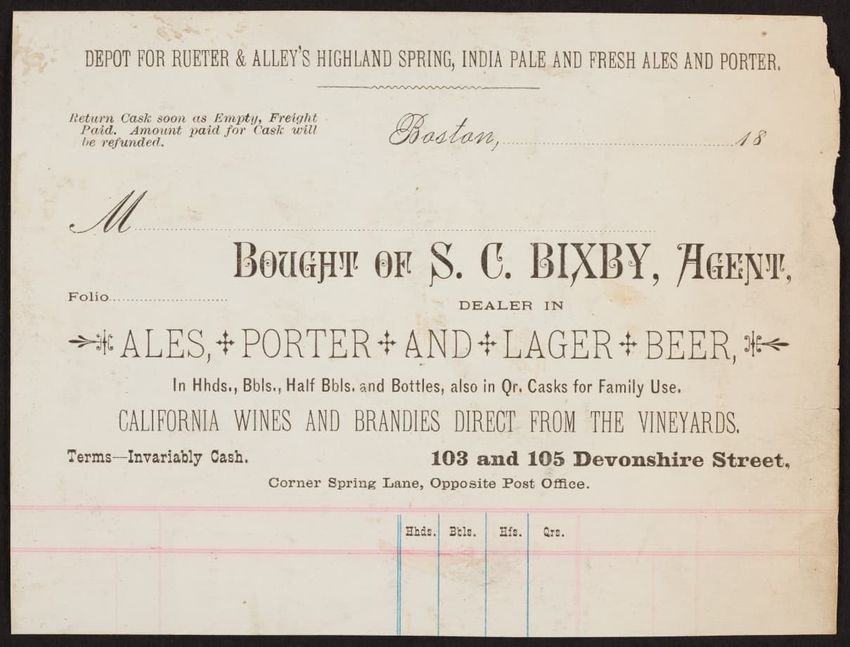 DEPOT FOR RUETER & ALLEY'S HIGHLAND SPRING, INDIA PALE AND FRESH ALES AND PORTER.
Return Cask soon as Empty, Freight
Paid. Amount paid for Cask will
be refunded.
Boston, 18
M
BOUGHT OF S. C. BIXBY, AGENT,
Folio
DEALER IN
ALES, PORTER AND LAGER BEER,
In Hhds., Bbls., Half Bbls. and Bottles, also in Qr. Casks for Family Use.
CALIFORNIA WINES AND BRANDIES DIRECT FROM THE VINEYARDS.
Terms—Invariably Cash. 103 and 105 Devonshire Street,
Corner Spring Lane, Opposite Post Office.
Hhds. Bbls. Hfs. Qrs.